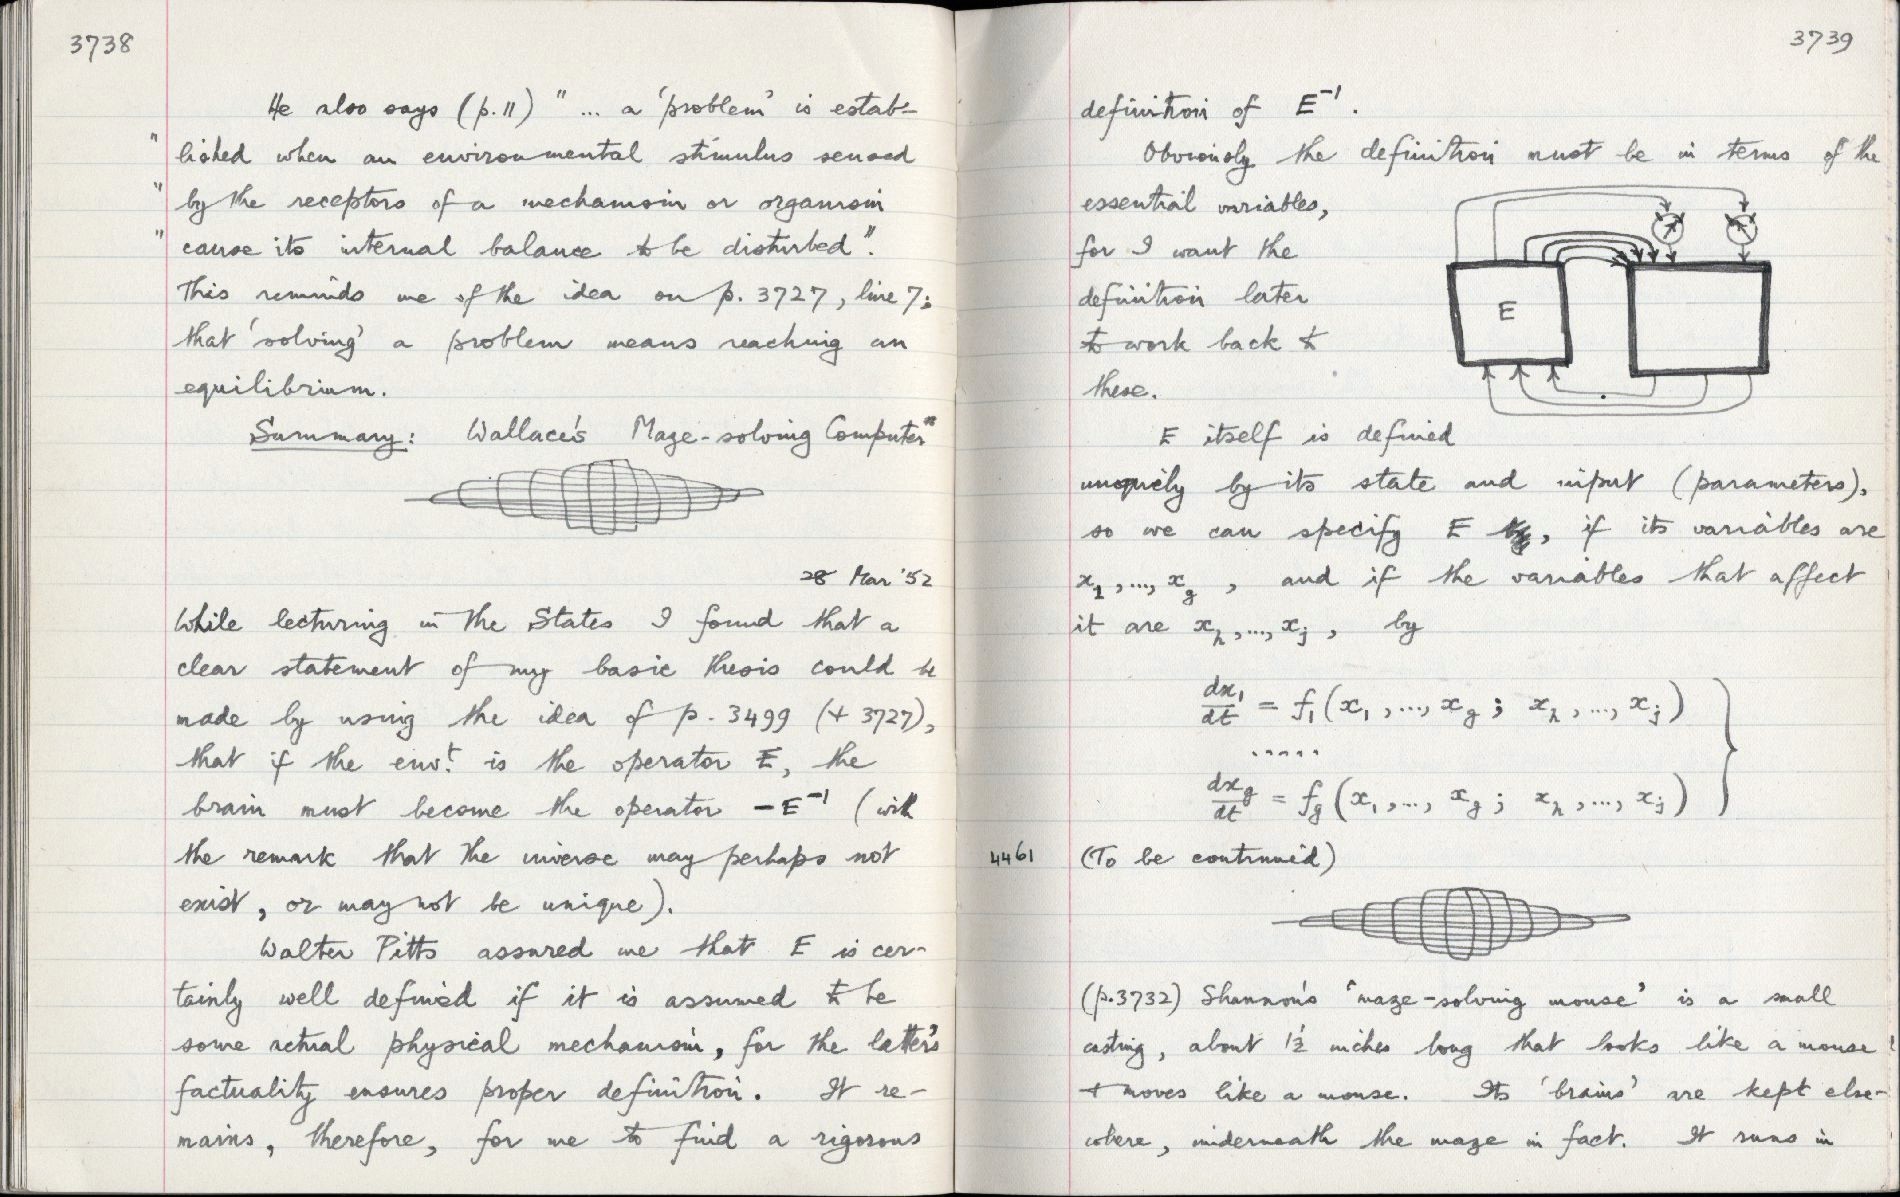 3738
He also says (p.11) " ... a 'problem' is estab-
" lished when an environmental stimulus sensed
" by the receptors of a mechanism or organism
" cause its internal balance to be disturbed".
This reminds me of the idea on p. 3727, line 7;
that 'solving' a problem means reaching an
equilibrium.
Summary: Wallace's Maze-solving Computer
28 Mar '52
While lecturing in the States I found that a
clear statement of my basic thesis could be
made by using the idea of p. 3499 (+ 3727),
that if the envt. is the operator E, the
brain must become the operator -E⁻¹ (with
the remark that the inverse may perhaps not
exist, or may not be unique).
Walter Pitts assured me that E is cer-
tainly well defined if it is assumed to be
some actual physical mechanism, for the latter's
factuality ensures proper definition. It re-
mains, therefore, for me to find a rigorous
3739
definition of E⁻¹.
Obviously the definition must be in terms of the
essential variables,
for I want the
definition later
to work back to
these.
E
E itself is defined
uniquely by its state and input (parameters),
so we can specify E , if its variables are
x₁, ..., x_g , and if the variables that affect
it are x_h, ..., x_j , by
dx₁/dt = f₁(x₁, ..., x_g ; x_h, ..., x_j)
.....
dx_g/dt = f_g(x₁, ..., x_g ; x_h, ..., x_j)
4461 (To be continued)
(p.3732) Shannon's 'maze-solving mouse' is a small
casting, about 1½ inches long that looks like a mouse
+ moves like a mouse. Its 'brains' are kept else-
where, underneath the maze in fact. It runs in